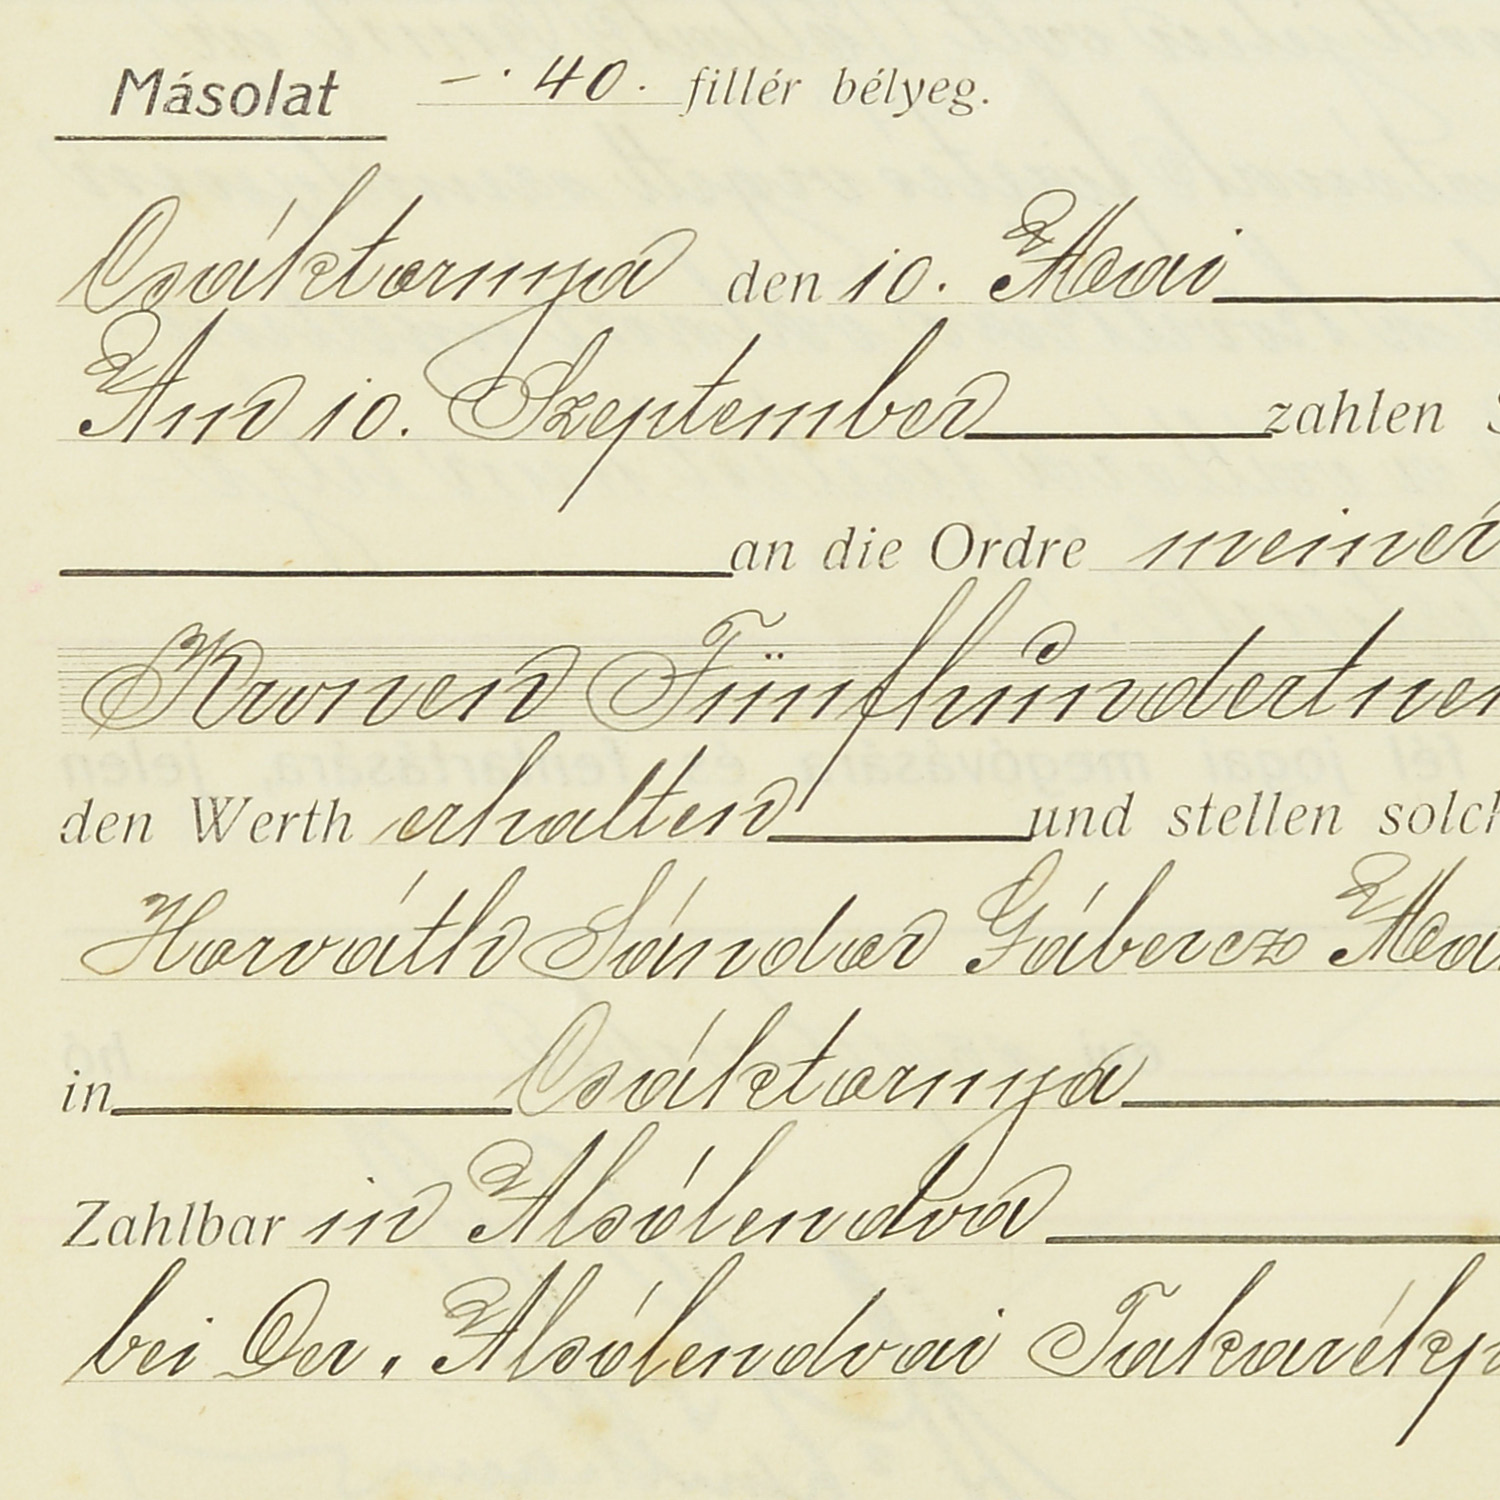 Másolat —. 40. fillér bélyeg.
Csáktornya den 10. Mai
Am 10. Szeptember zahlen S
an die Ordre meiner
Kronen Fünfhundertneu
den Werth erhalten und stellen solch
Horváth Sándor Gábercz Ma
in Csáktornya
Zahlbar in Alsólendva
bei Der. Alsólendvai Takarékp